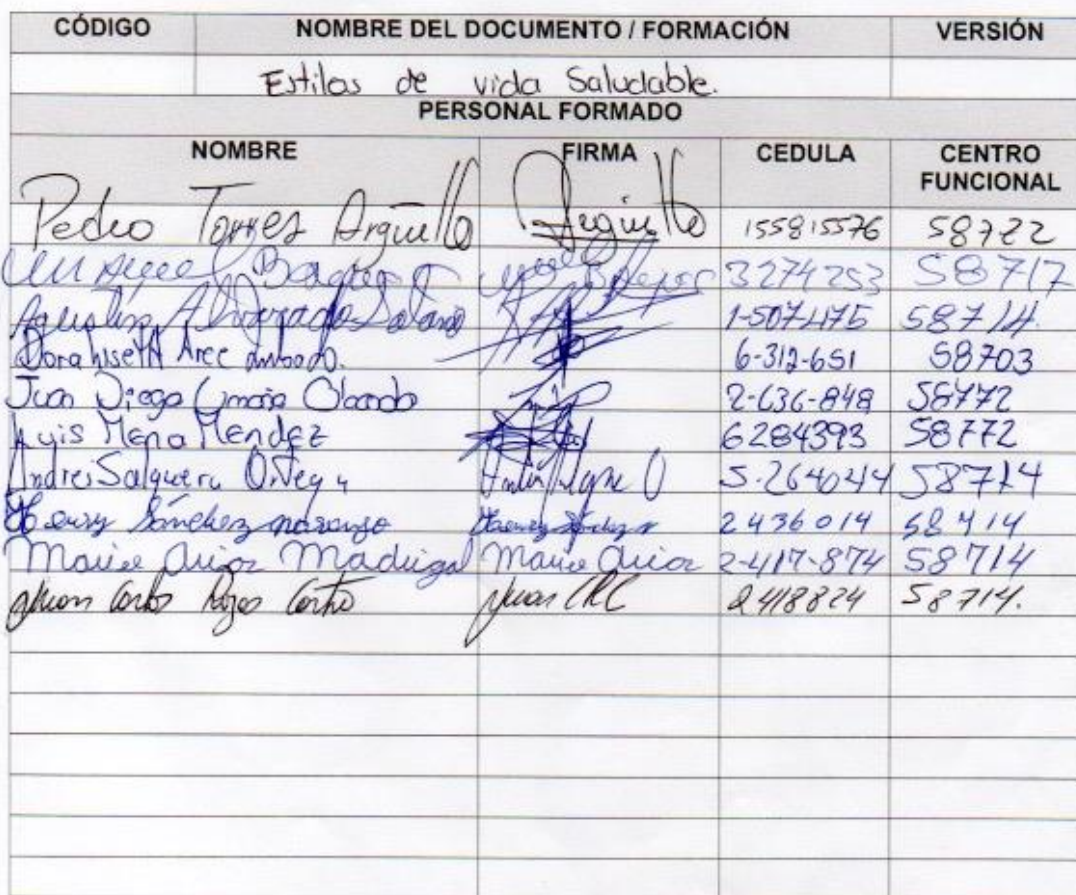 CÓDIGO NOMBRE DEL DOCUMENTO / FORMACIÓN VERSIÓN
Estilos de vida Saludable.
PERSONAL FORMADO
NOMBRE FIRMA CEDULA CENTRO FUNCIONAL
Pedro Torres Argüello Argüello 155815576 58722
3274253 58717
Agustin Alvarado Solano 1-507475 58714.
Dora liseth Arce 6-312-651 58703
Juan Diego Obando 2-636-848 58772
Luis Mena Mendez 6284393 58772
Andrei Salguera Ortega 5-264044 58714
Sánchez naranjo 2436014 58714
Arias Madrigal 2-417-874 58714
Juan Carlos Rojas Castro Juan CRC 2418824 58714.